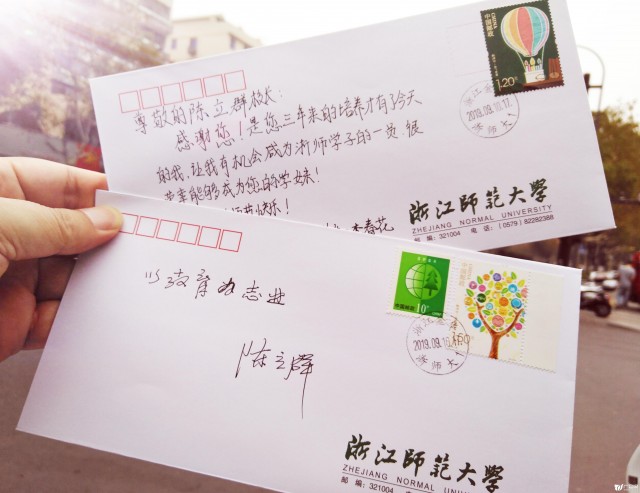 中国邮政
CHINA
1.20元
浙江金
2019.09.10.17
浙师大1
尊敬的陈立群校长：
感谢您！是您三年来的培养才有了今天
的我，让我有机会成为浙师学子的一员.很
荣幸能够成为您的学妹！
快乐！
李春花
浙江師范大學
ZHEJIANG NORMAL UNIVERSITY
邮编：321004 电话：(0579) 82282388
以教育为志业
陈立群
中国邮政
10
浙江金
2019.09.10.1
浙师大1
浙江師范大學
ZHEJIANG NORMAL UNIVERSITY
邮编：321004